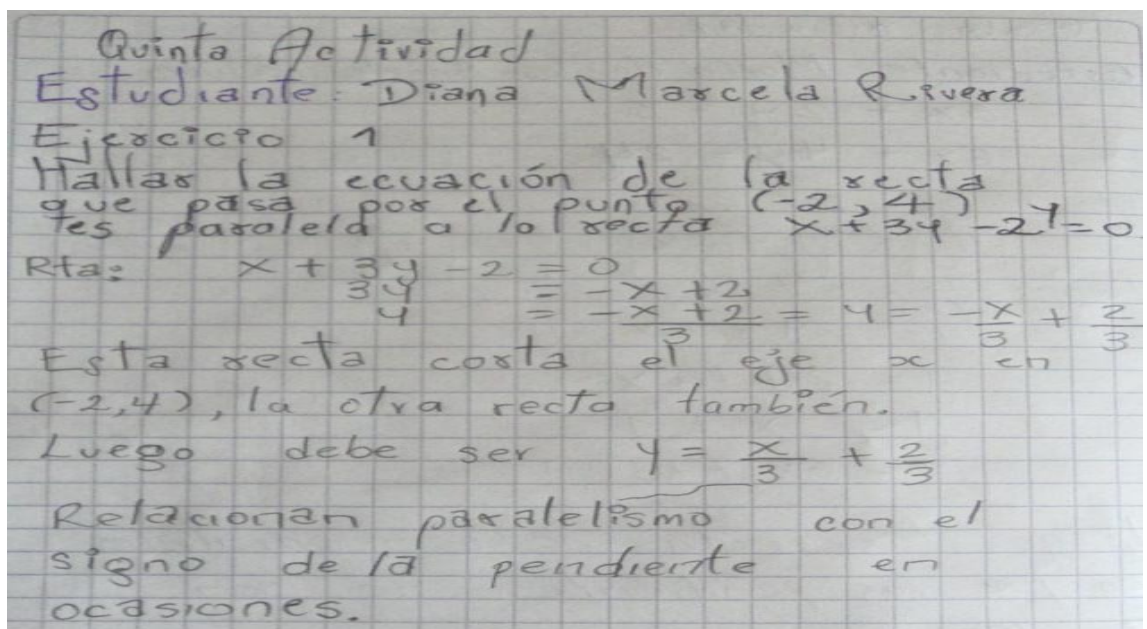 Quinta Actividad
Estudiante: Diana Marcela Rivera
Ejercicio 1
Hallar la ecuación de la recta
que pasa por el punto (-2, 4)
y es paralela a la recta x + 3y - 2 = 0
Rta: x + 3y - 2 = 0
3y = -x + 2
y = (-x + 2)/3 = y = -x/3 + 2/3
Esta recta corta el eje x en
(-2,4), la otra recta también.
Luego debe ser y = x/3 + 2/3
Relacionan paralelismo con el
signo de la pendiente en
ocasiones.